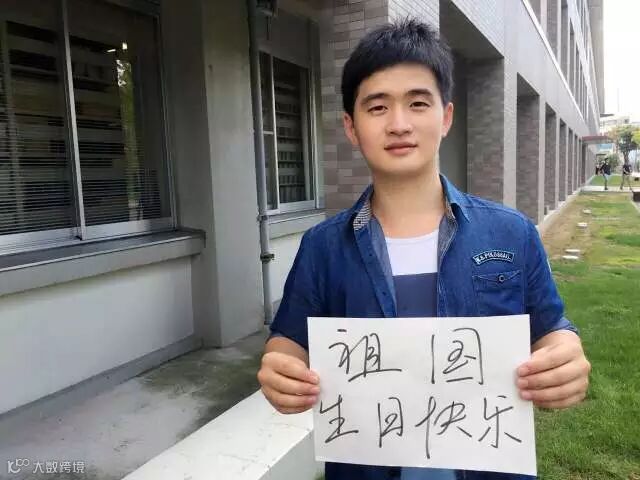 祖国
生日快乐
大数跨境